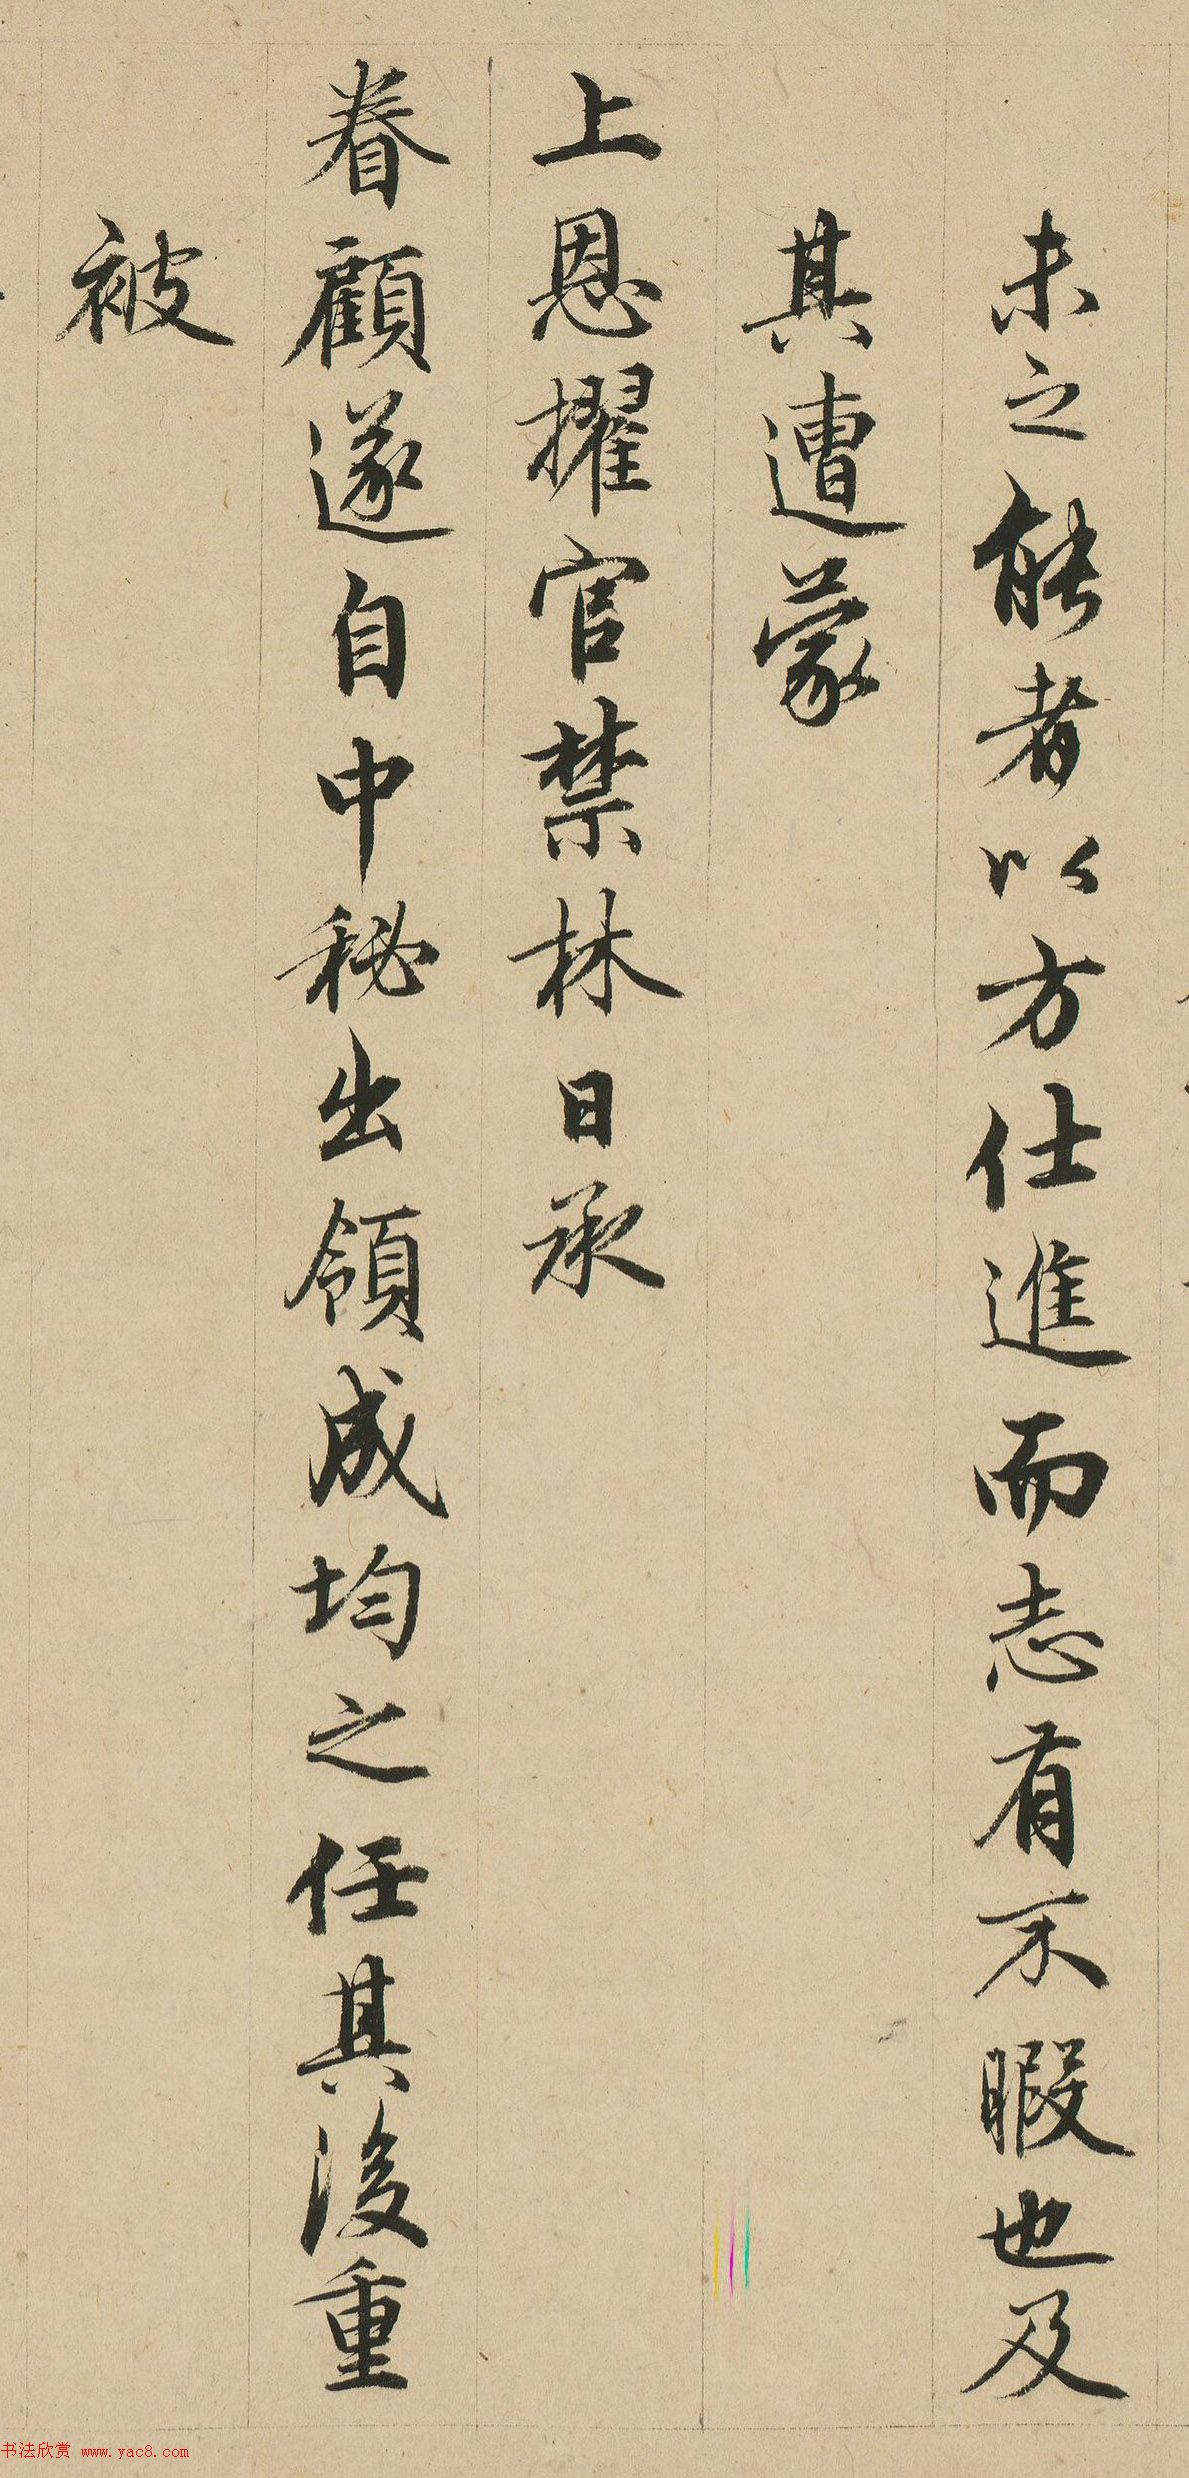 未之能者以方仕進而志有不暇也及
其遭蒙
上恩擢官禁林日承
眷顧遂自中秘出領成均之任其後重
被
书法欣赏 www.yac8.com